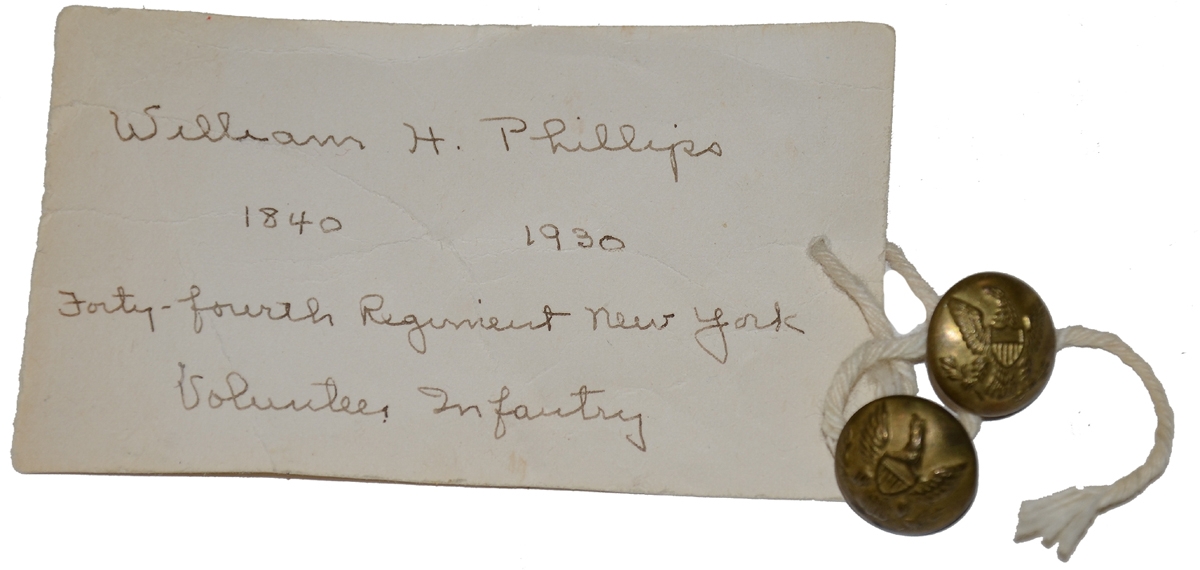 William H. Phillips
1840 1930
Forty-fourth Regiment New York
Volunteer Infantry